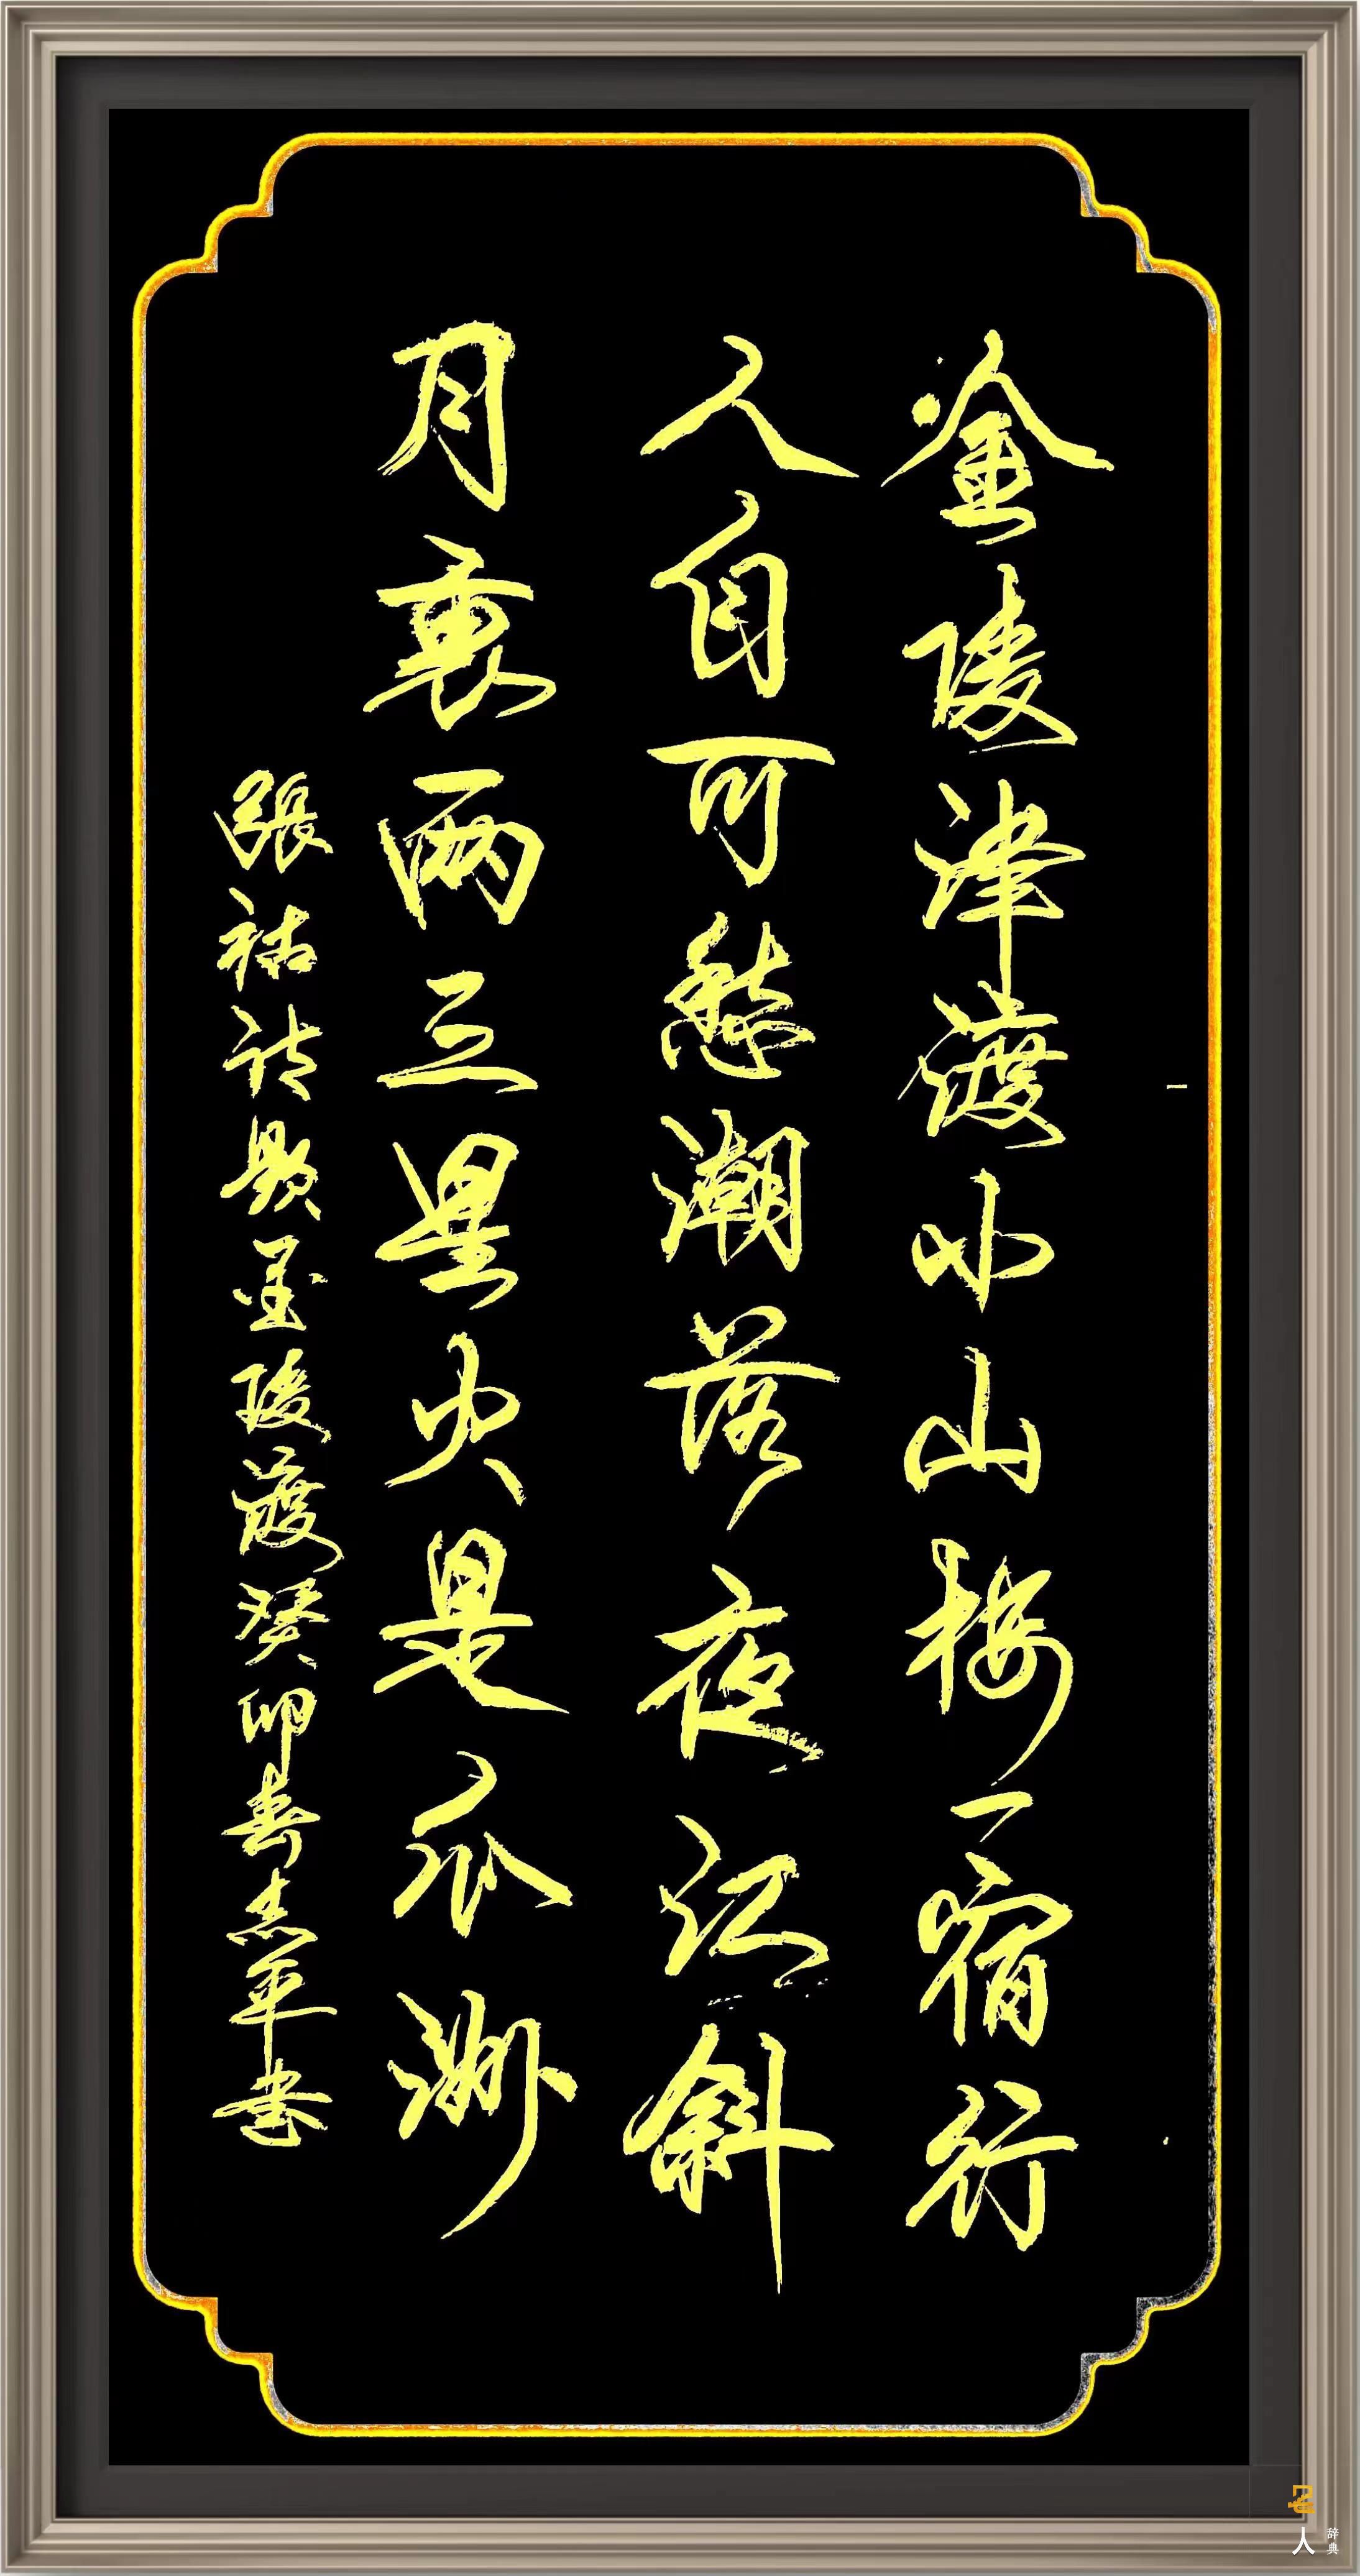 金陵津渡小山楼一宿行
人自可愁潮落夜江斜
月裏两三星火是瓜洲
張祜诗题金陵渡癸卯春志平书
名人辞典